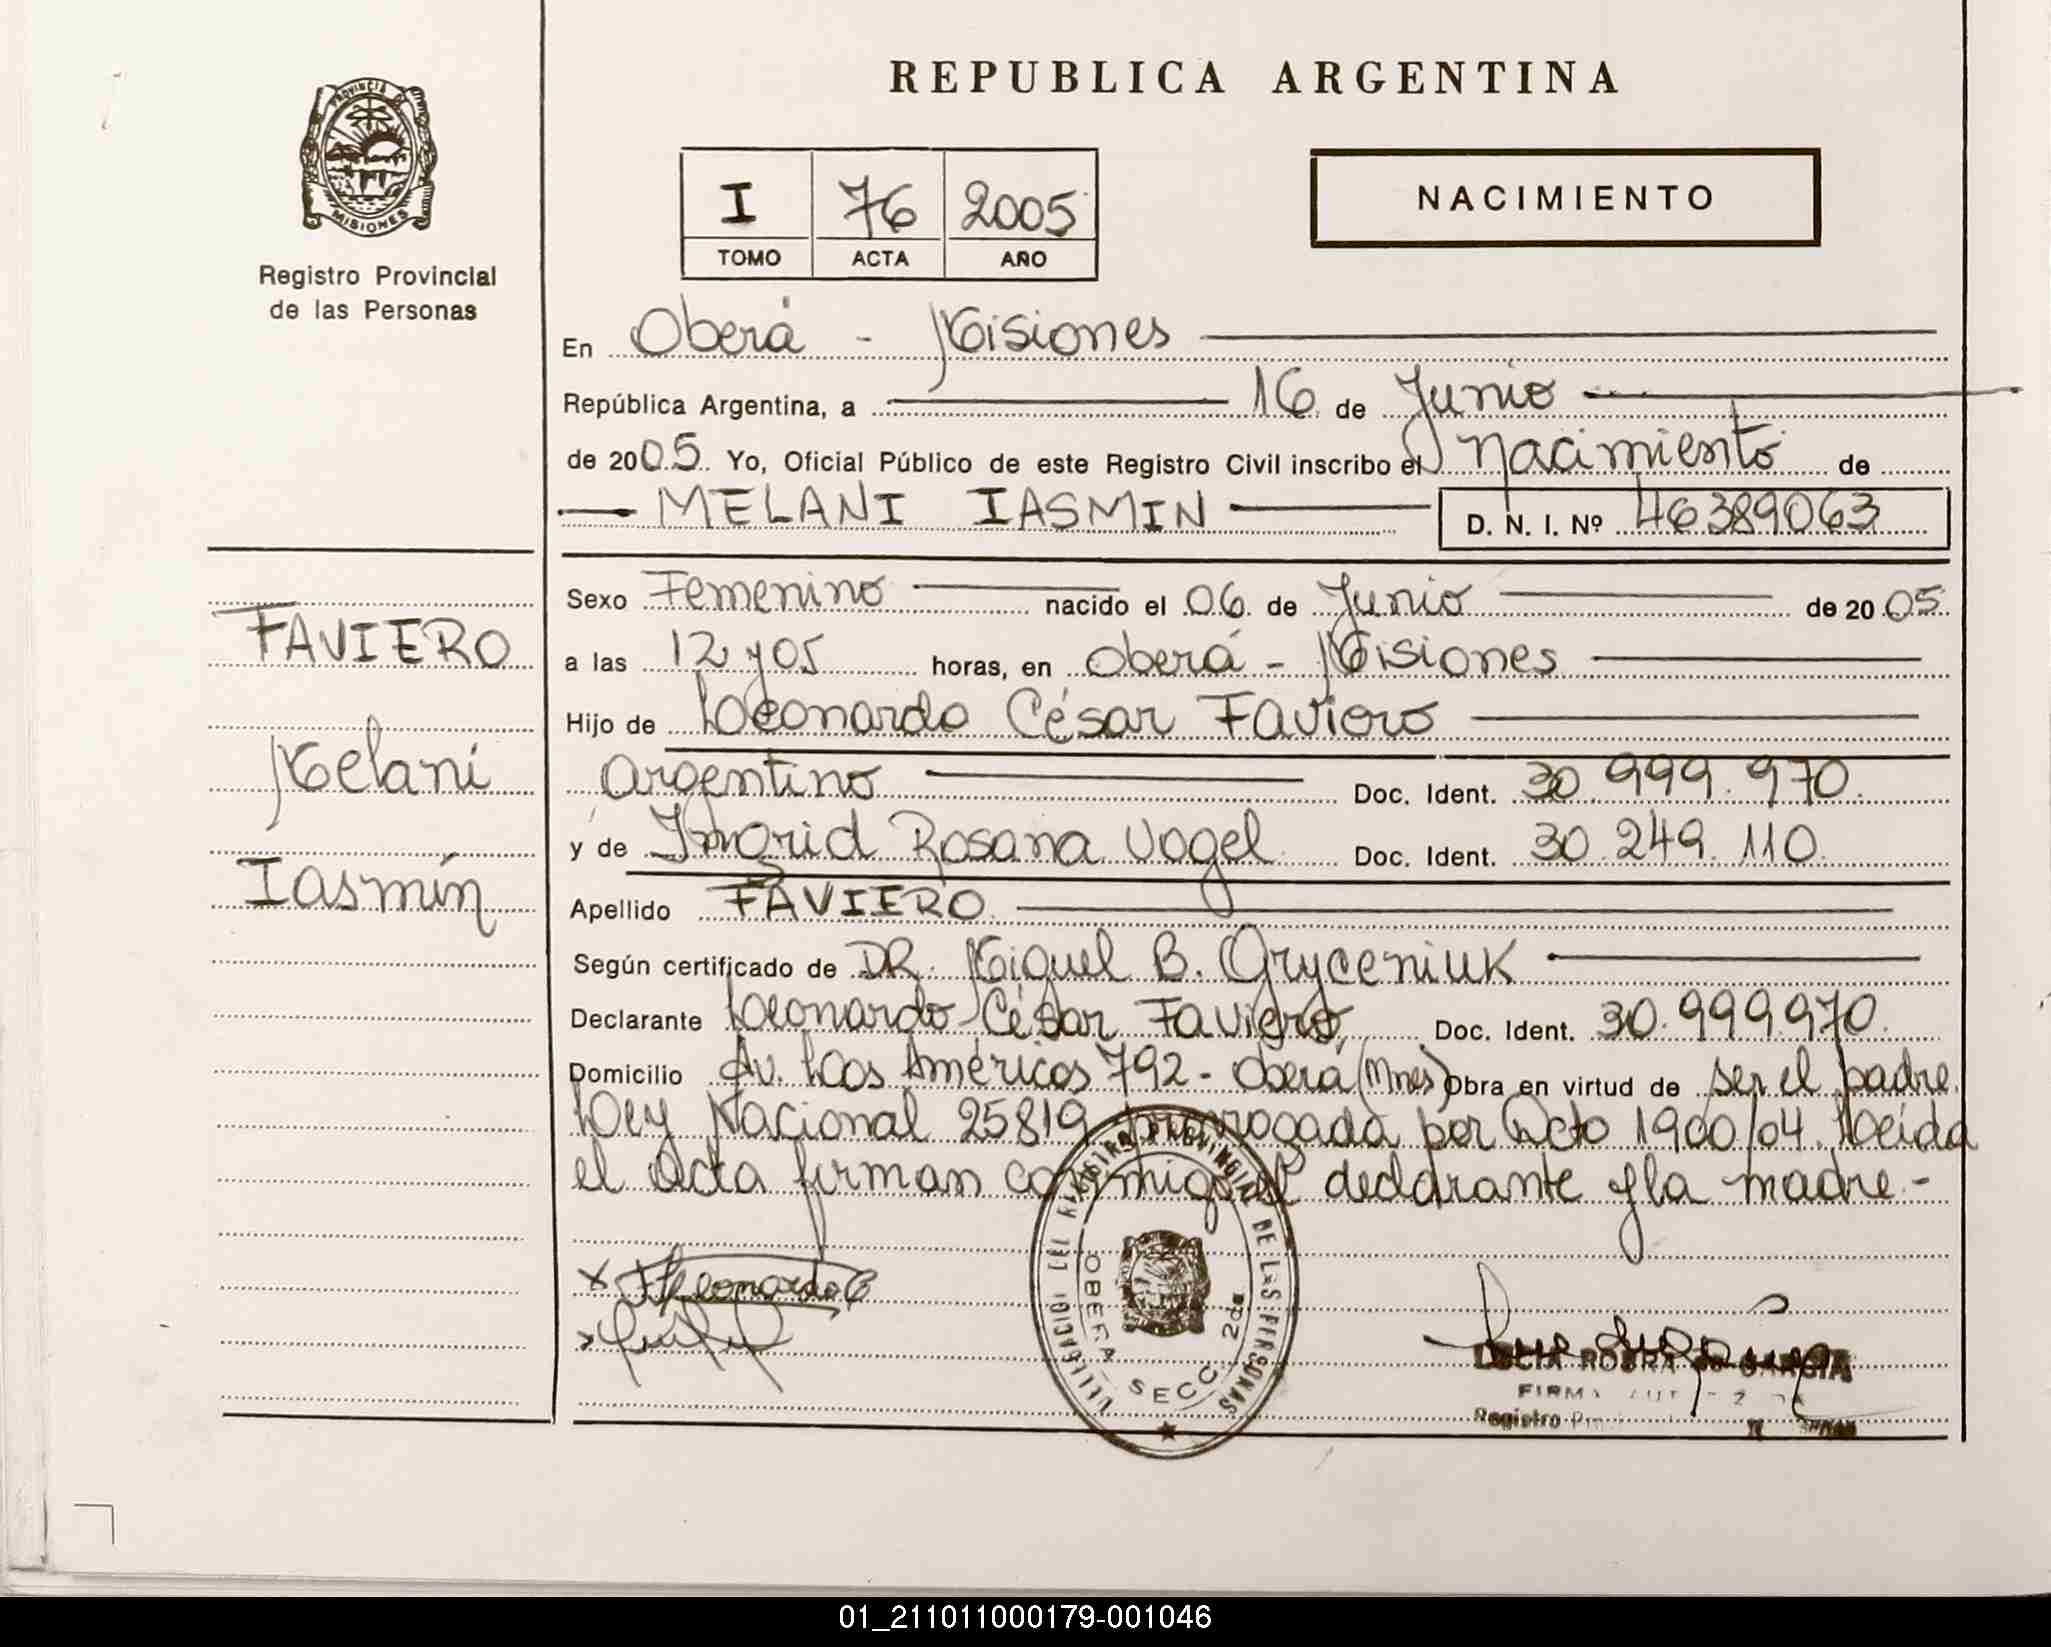 REPUBLICA ARGENTINA
PROVINCIA D
MISIONES
Registro Provincial
de las Personas
I 76 2005
TOMO ACTA AÑO
NACIMIENTO
En Oberá - Misiones
República Argentina, a 16 de Junio
de 2005 Yo, Oficial Público de este Registro Civil inscribo el Nacimiento de
MELANI IASMIN D. N. I. Nº 46389063
FAVIERO
Melani
Iasmín
Sexo Femenino nacido el 06 de Junio de 2005
a las 12 y 05 horas, en Oberá - Misiones
Hijo de Leonardo César Faviero
Argentino Doc. Ident. 30.999.970.
y de Ingrid Rosana Vogel Doc. Ident. 30.249.110.
Apellido FAVIERO
Según certificado de DR. Miguel B. Gryceniuk
Declarante Leonardo César Faviero Doc. Ident. 30.999.970.
Domicilio Av. Las Américas 792 - Oberá (Mnes) Obra en virtud de ser el padre.
Ley Nacional 25819 prorrogada por Dcto 1900/04. Leida
el Acta firman conmigo el declarante y la madre.-
DELEGACION DEL REGISTRO PROVINCIAL DE LAS PERSONAS
OBERA SECC. 2da
Leonardo C
LUCIA GARCIA
FIRMA
Registro
01_211011000179-001046